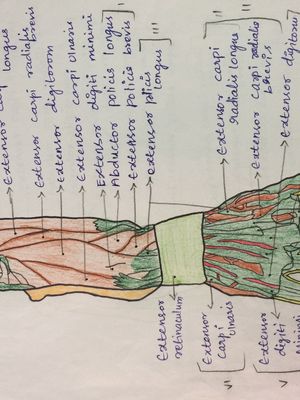 Extensor carpi longus
Extensor carpi radialis
brevis
Extensor digitorom
Extensor carpi ulnaris
Extensor digiti minimi
Abductor policis longus
Extensor policis brevis
extensor policis
longus
I
III
Extensor
retinaculum
Extensor carpi
radialis longus
II
Extensor
carpi
ulnaris
VI
Extensor carpi radialis
brevis
Extensor
digiti
V